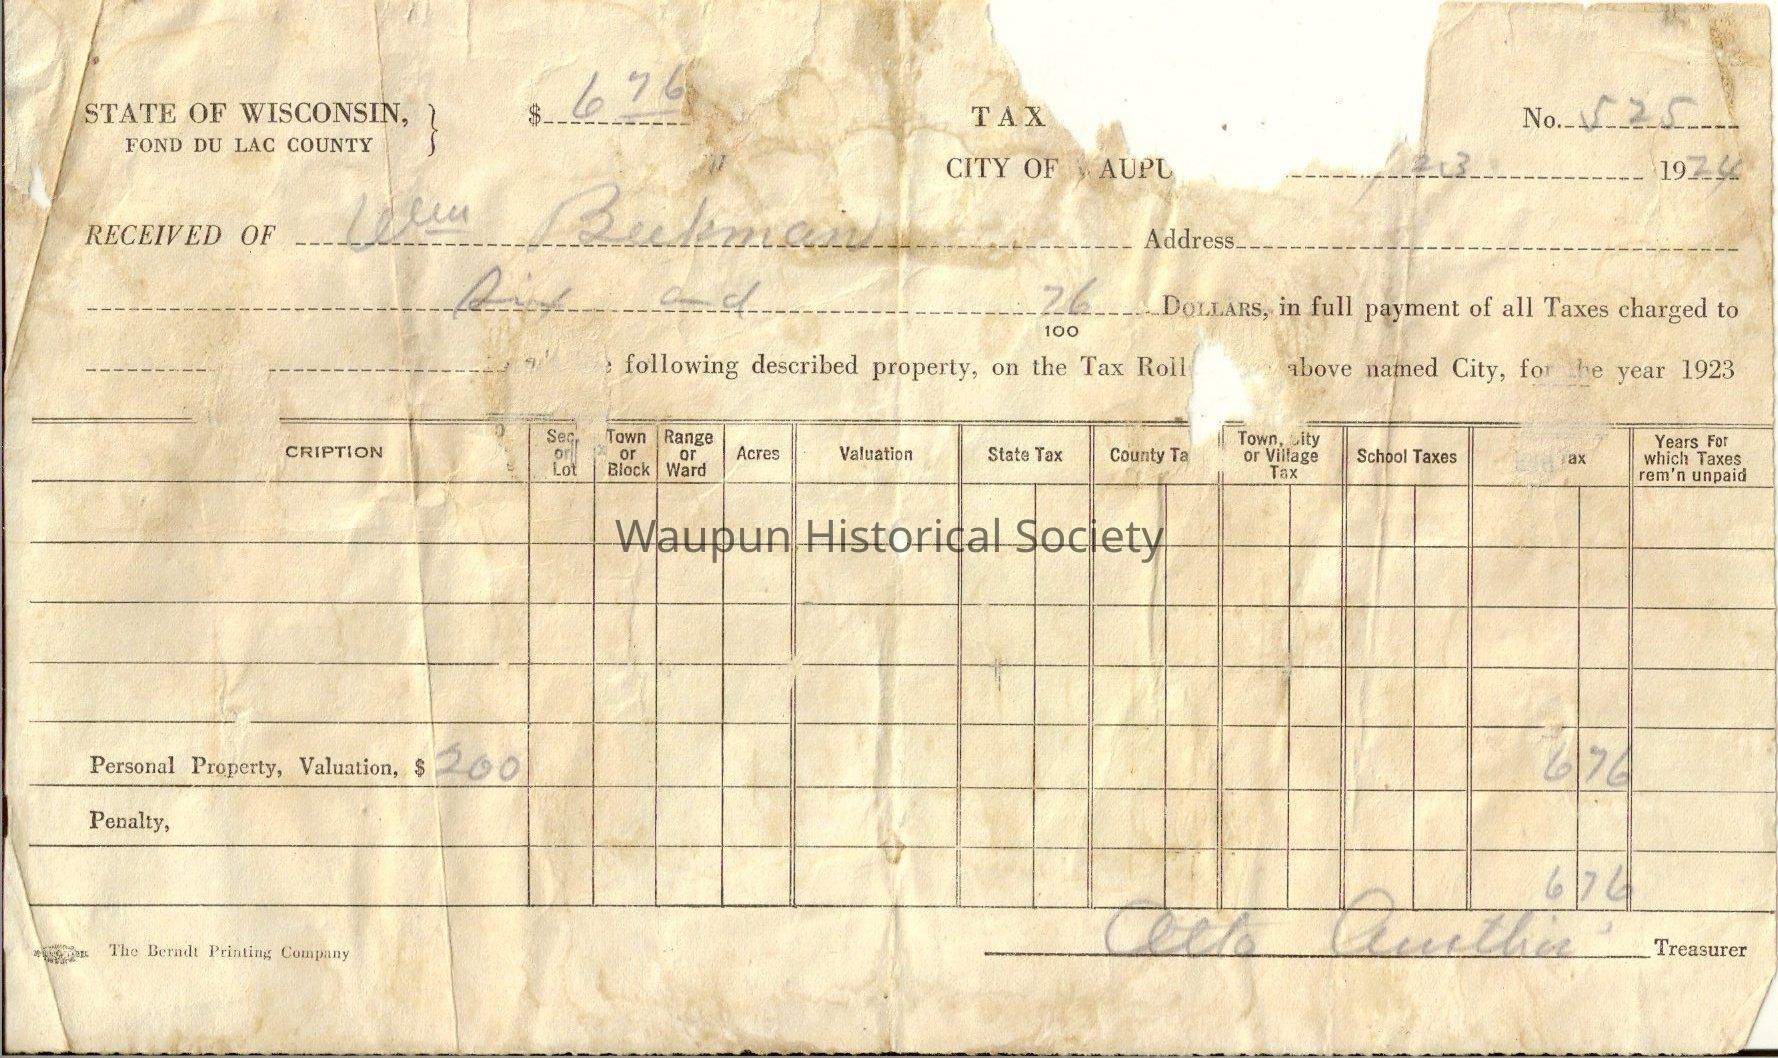 STATE OF WISCONSIN, $ 6 76 TAX No. 525
FOND DU LAC COUNTY
CITY OF AUPU 1/23 1924
RECEIVED OF Wm Beekman Address
Six and 76/100 DOLLARS, in full payment of all Taxes charged to
following described property, on the Tax Roll above named City, for the year 1923
CRIPTION Sec or Lot Town or Block Range or Ward Acres Valuation State Tax County Ta Town, City or Village Tax School Taxes Tax Years For which Taxes rem'n unpaid
Waupun Historical Society
Personal Property, Valuation, $ 200 6 76
Penalty,
6 76
The Berndt Printing Company Otto Treasurer